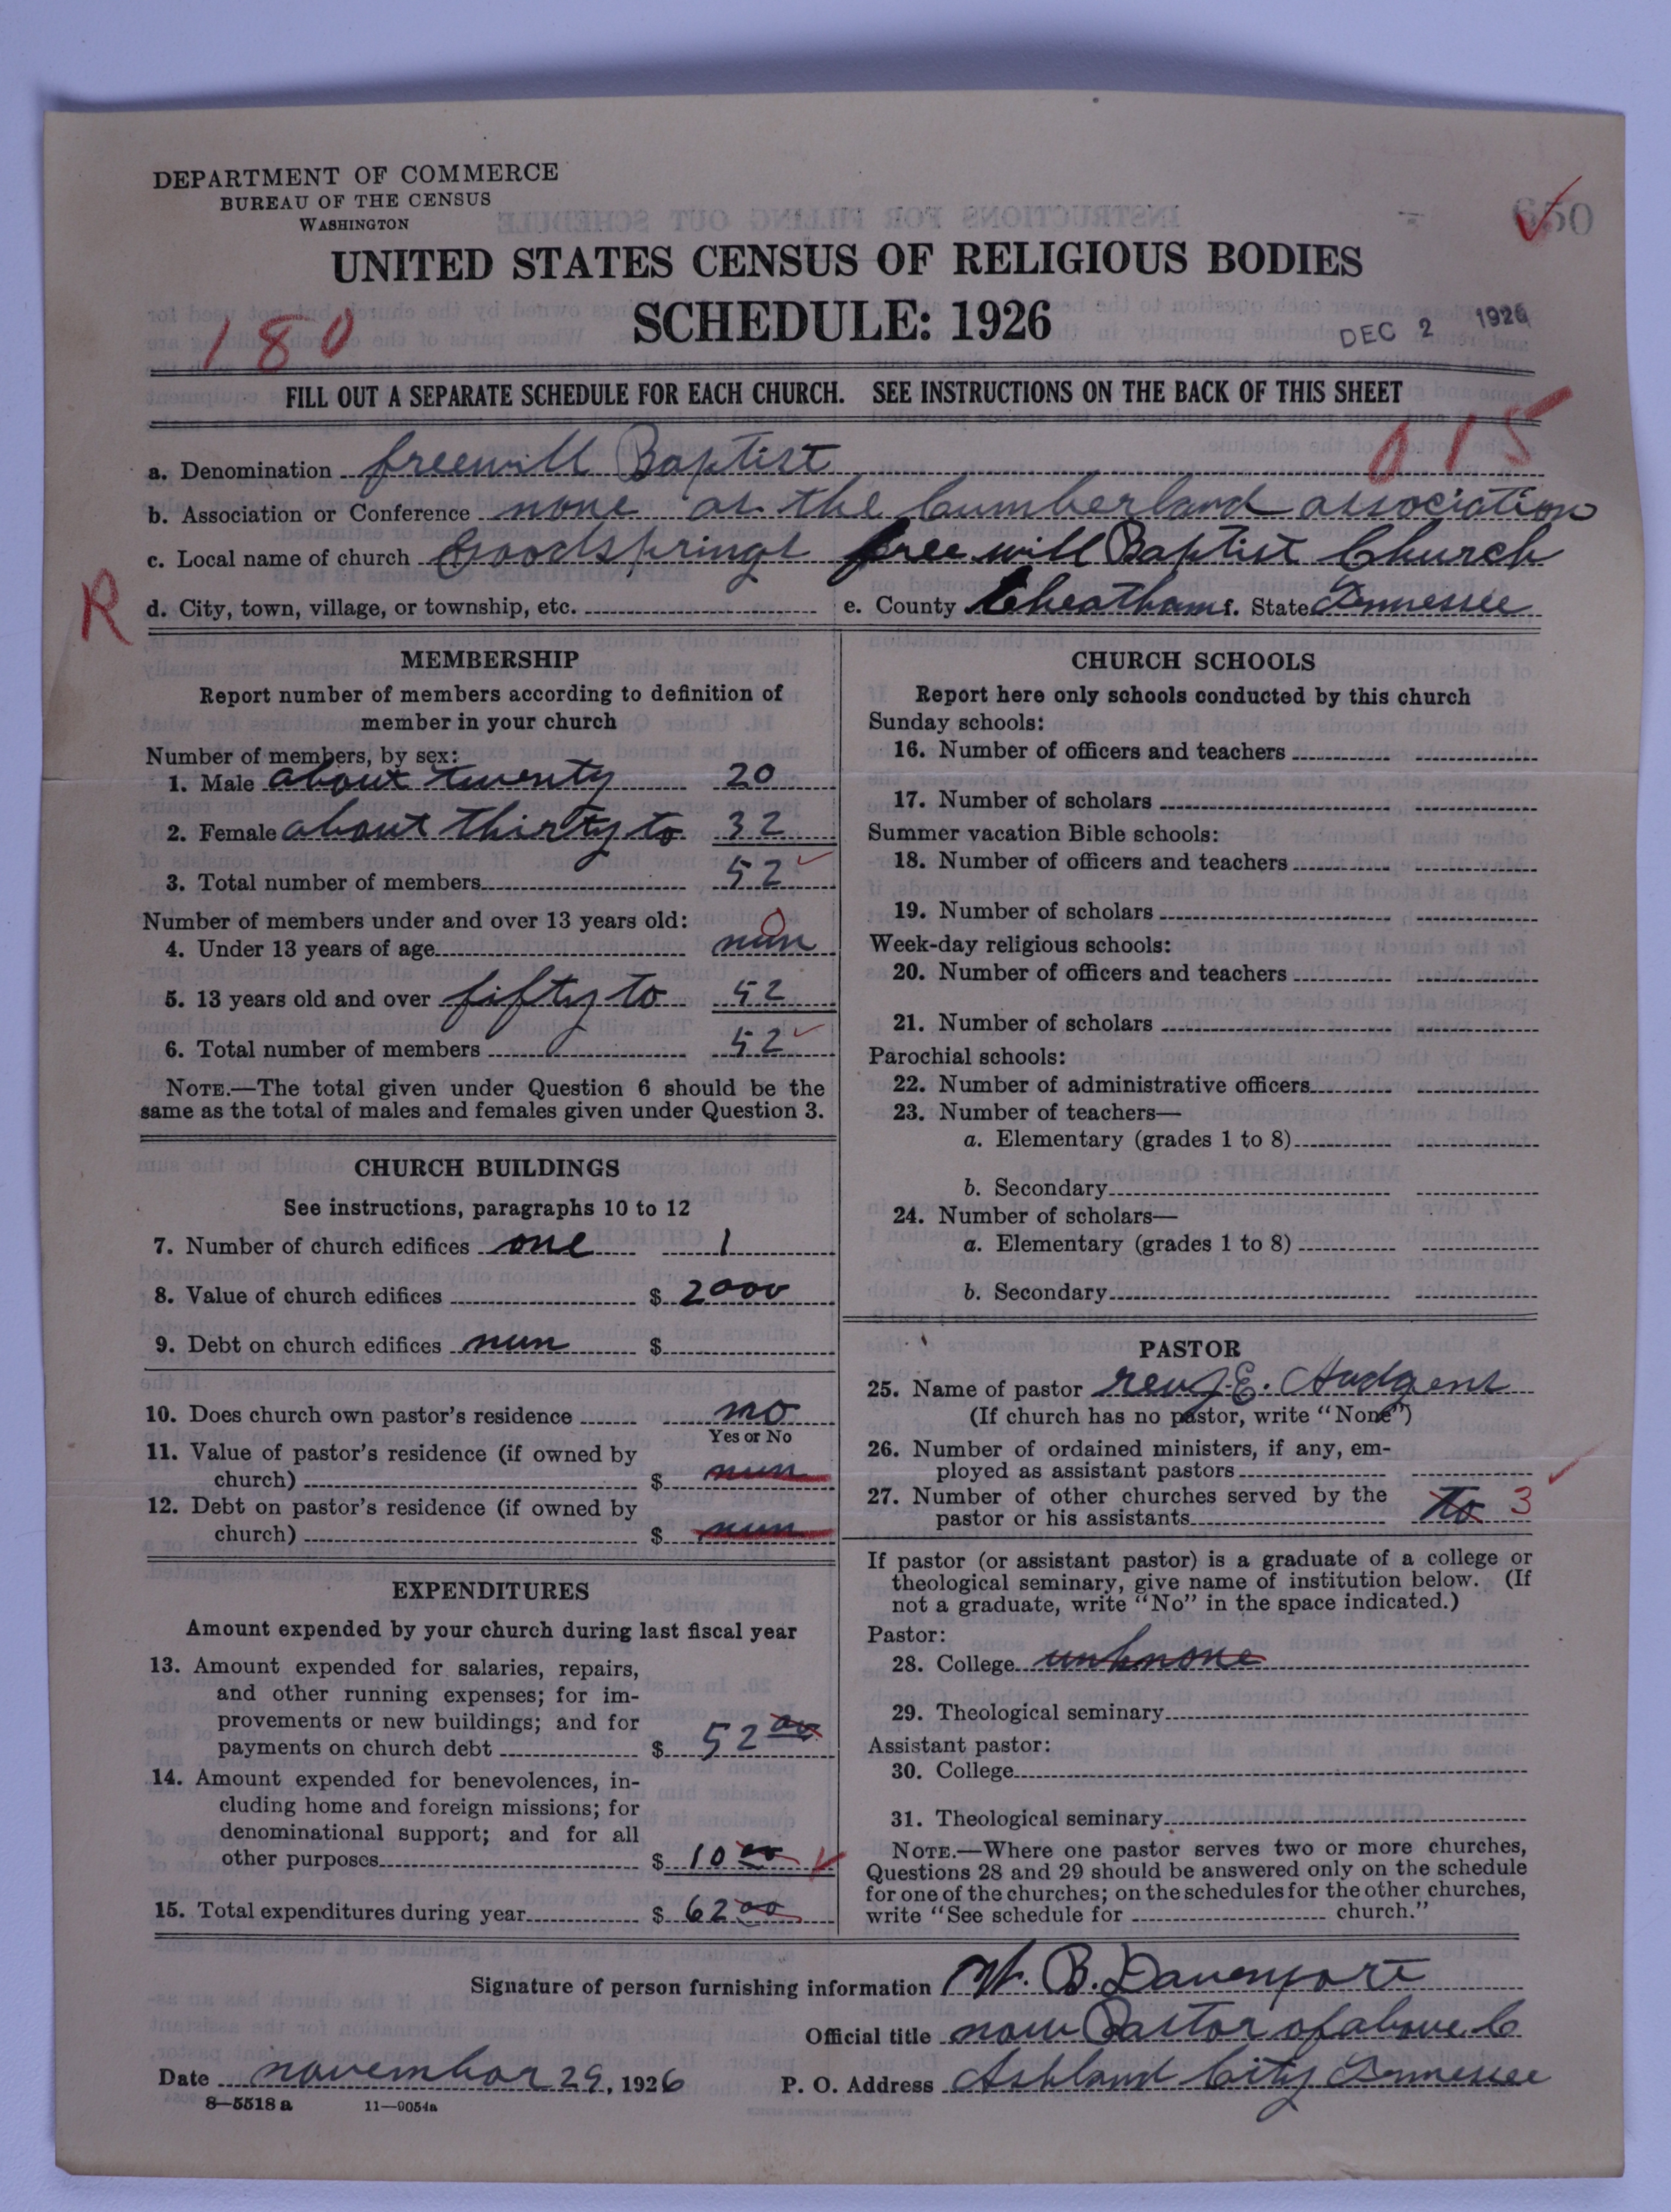 DEPARTMENT OF COMMERCE
BUREAU OF THE CENSUS
WASHINGTON
650
UNITED STATES CENSUS OF RELIGIOUS BODIES
SCHEDULE: 1926
180
DEC 2 1926
FILL OUT A SEPARATE SCHEDULE FOR EACH CHURCH. SEE INSTRUCTIONS ON THE BACK OF THIS SHEET
015
a. Denomination freewill Baptist
b. Association or Conference none as the Cumberland association
c. Local name of church Goodsprings free will Baptist Church
R
d. City, town, village, or township, etc. e. County Cheatham f. State Tennessee
MEMBERSHIP
Report number of members according to definition of
member in your church
Number of members, by sex:
1. Male about twenty 20
2. Female about thirty to 32
3. Total number of members 52
Number of members under and over 13 years old:
0
4. Under 13 years of age nun
5. 13 years old and over fifty to 52
6. Total number of members 52
NOTE.—The total given under Question 6 should be the
same as the total of males and females given under Question 3.
CHURCH BUILDINGS
See instructions, paragraphs 10 to 12
7. Number of church edifices one 1
8. Value of church edifices $ 2000
9. Debt on church edifices nun $
10. Does church own pastor's residence no
Yes or No
11. Value of pastor's residence (if owned by
church) $ nun
12. Debt on pastor's residence (if owned by
church) $ nun
EXPENDITURES
Amount expended by your church during last fiscal year
13. Amount expended for salaries, repairs,
and other running expenses; for im-
provements or new buildings; and for
payments on church debt $ 52 00
14. Amount expended for benevolences, in-
cluding home and foreign missions; for
denominational support; and for all
other purposes $ 10 00
15. Total expenditures during year $ 62 00
CHURCH SCHOOLS
Report here only schools conducted by this church
Sunday schools:
16. Number of officers and teachers
17. Number of scholars
Summer vacation Bible schools:
18. Number of officers and teachers
19. Number of scholars
Week-day religious schools:
20. Number of officers and teachers
21. Number of scholars
Parochial schools:
22. Number of administrative officers
23. Number of teachers—
a. Elementary (grades 1 to 8)
b. Secondary
24. Number of scholars—
a. Elementary (grades 1 to 8)
b. Secondary
PASTOR
25. Name of pastor rev J. E. Hudgens
(If church has no pastor, write "None")
26. Number of ordained ministers, if any, em-
ployed as assistant pastors
27. Number of other churches served by the
pastor or his assistants to 3
If pastor (or assistant pastor) is a graduate of a college or
theological seminary, give name of institution below. (If
not a graduate, write "No" in the space indicated.)
Pastor:
28. College unknone
29. Theological seminary
Assistant pastor:
30. College
31. Theological seminary
NOTE.—Where one pastor serves two or more churches,
Questions 28 and 29 should be answered only on the schedule
for one of the churches; on the schedules for the other churches,
write "See schedule for church."
Signature of person furnishing information W. B. Davenport
Official title now Pastor of above C
Date november 29, 1926 P. O. Address Ashland City Tennessee
8—5518 a 11—9054a